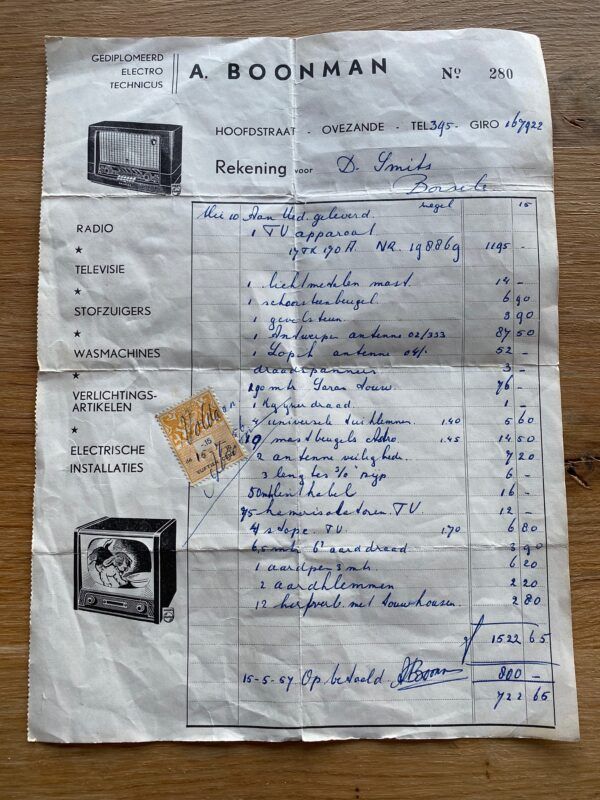 GEDIPLOMEERD
ELECTRO
TECHNICUS
A. BOONMAN
No 280
HOOFDSTRAAT - OVEZANDE - TEL 395 - GIRO 167922
Rekening voor D. Smits
Borsele
RADIO
★
TELEVISIE
★
STOFZUIGERS
★
WASMACHINES
★
VERLICHTINGS-
ARTIKELEN
★
ELECTRISCHE
INSTALLATIES
Mei 10 Aan Ued. geleverd. zegel 15
1 TV apparaat
17TX 170A. NR. 19886g 1195 -
1 lichtmetalen mast. 14 -
1 schoorsteenbeugel. 6 90
1 gevelsteun 3 90
1 Antwerpen antenne 02/333 87 50
1 Lopik antenne 04/. 52 -
draadspanners 3 -
190 mtr Saran touw. 76 -
1 Kg ijzerdraad. 1 -
4 universele tuiklemmen. 1.40 5 60
10 mastbeugels Astro 1.45 14 50
2 antenne veiligheden 7 20
3 lengtes 3/8" pijp 6 -
50 mtr lintkabel 16 -
75 kamerisolatoren. TV. 12 -
4 stope TV. 1.70 6 80
6,5 mtr 6² aarddraad 3 90
1 aardpen 3 mtr 6 20
2 aardklemmen 2 20
12 kerfverb. met touwkousen. 2 80
1522 65
15-5-57 Op betaald ABoonm 800 -
722 65
Voldaan
15